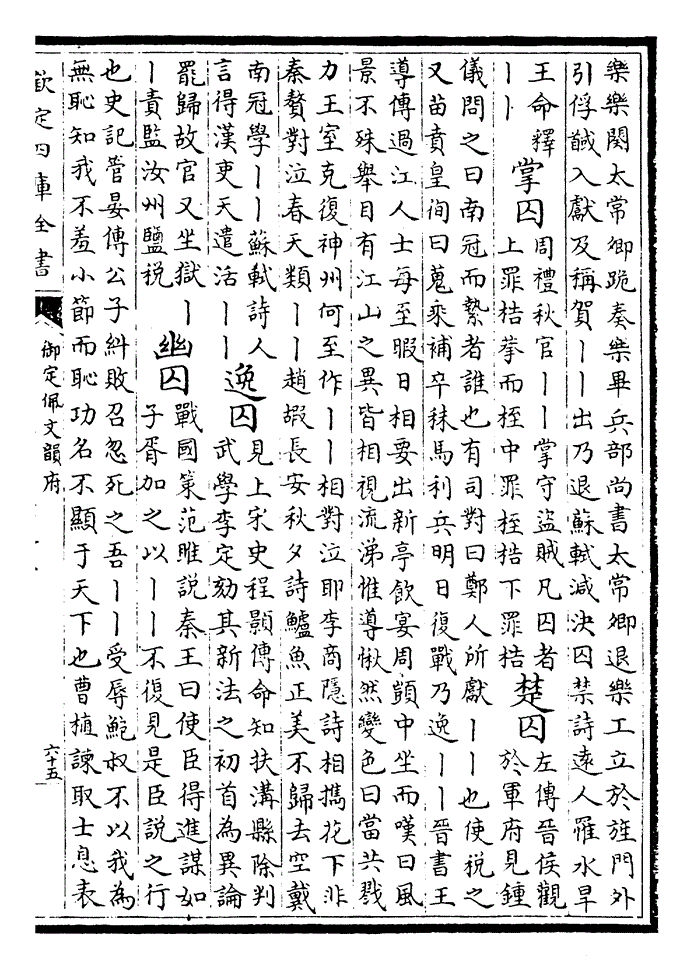 樂樂闋太常卿跪奏樂畢兵部尚書太常卿退樂工立於旌門外
引俘馘入獻及稱賀丨丨出乃退蘇軾減決囚禁詩遠人罹水旱
王命釋
丨丨
掌囚
周禮秋官丨丨掌守盜賊凡囚者
上罪梏拲而桎中罪桎梏下罪梏
楚囚
左傳晉侯觀
於軍府見鍾
儀問之曰南冠而縶者誰也有司對曰鄭人所獻丨丨也使稅之
又苗賁皇徇曰蒐乘補卒秣馬利兵明日復戰乃逸丨丨晉書王
導傳過江人士每至暇日相要出新亭飲宴周顗中坐而嘆曰風
景不殊舉目有江山之異皆相視流涕惟導愀然變色曰當共戮
力王室克復神州何至作丨丨相對泣耶李商隱詩相攜花下非
秦贅對泣春天類丨丨趙嘏長安秋夕詩鱸魚正美不歸去空戴
南冠學丨丨蘇軾詩人
言得漢吏天遣活丨丨
逸囚
見上宋史程顥傳命知扶溝縣除判
武學李定劾其新法之初首為異論
罷歸故官又坐獄丨
丨責監汝州鹽稅
幽囚
戰國策范雎說秦王曰使臣得進謀如
子胥加之以丨丨不復見是臣說之行
也史記管晏傳公子糾敗召忽死之吾丨丨受辱鮑叔不以我為
無恥知我不羞小節而恥功名不顯于天下也曹植諫取士息表
欽定四庫全書
御定佩文韻府
六十五